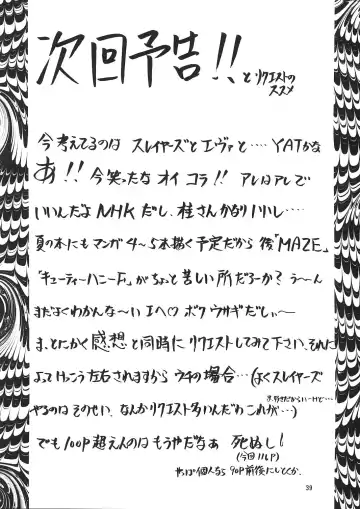 次回予告!! と リクエストの
ススメ
今考えてるのは スレイヤーズと エヴァと…… YATかな
あ!! 今笑ったな オイ コラ!! アレはアレで
いいんだよ NHKだし、桂さんかなりいいし…
夏の本にもマンガ4〜5本描く予定だから 後「MAZE」
「キューティーハニーF」がちょっと苦しい所だろーか? う〜ん
まだよくわかんな〜い エヘ♡ ボク ウサギだしぃ〜
ま、とにかく感想と同時に リクエストしてみて下さい、それに
よってけっこう左右されますから ウチの場合…(よくスレイヤーズ
ま、好きだからいーけど…
やるのは そのせい、なんかリクエスト多いんだわ これが…)
でも 100P超えんのは もうやだなぁ 死ぬし!
(今回112P)
やっぱ個人なら 90P前後にしとくか、
39